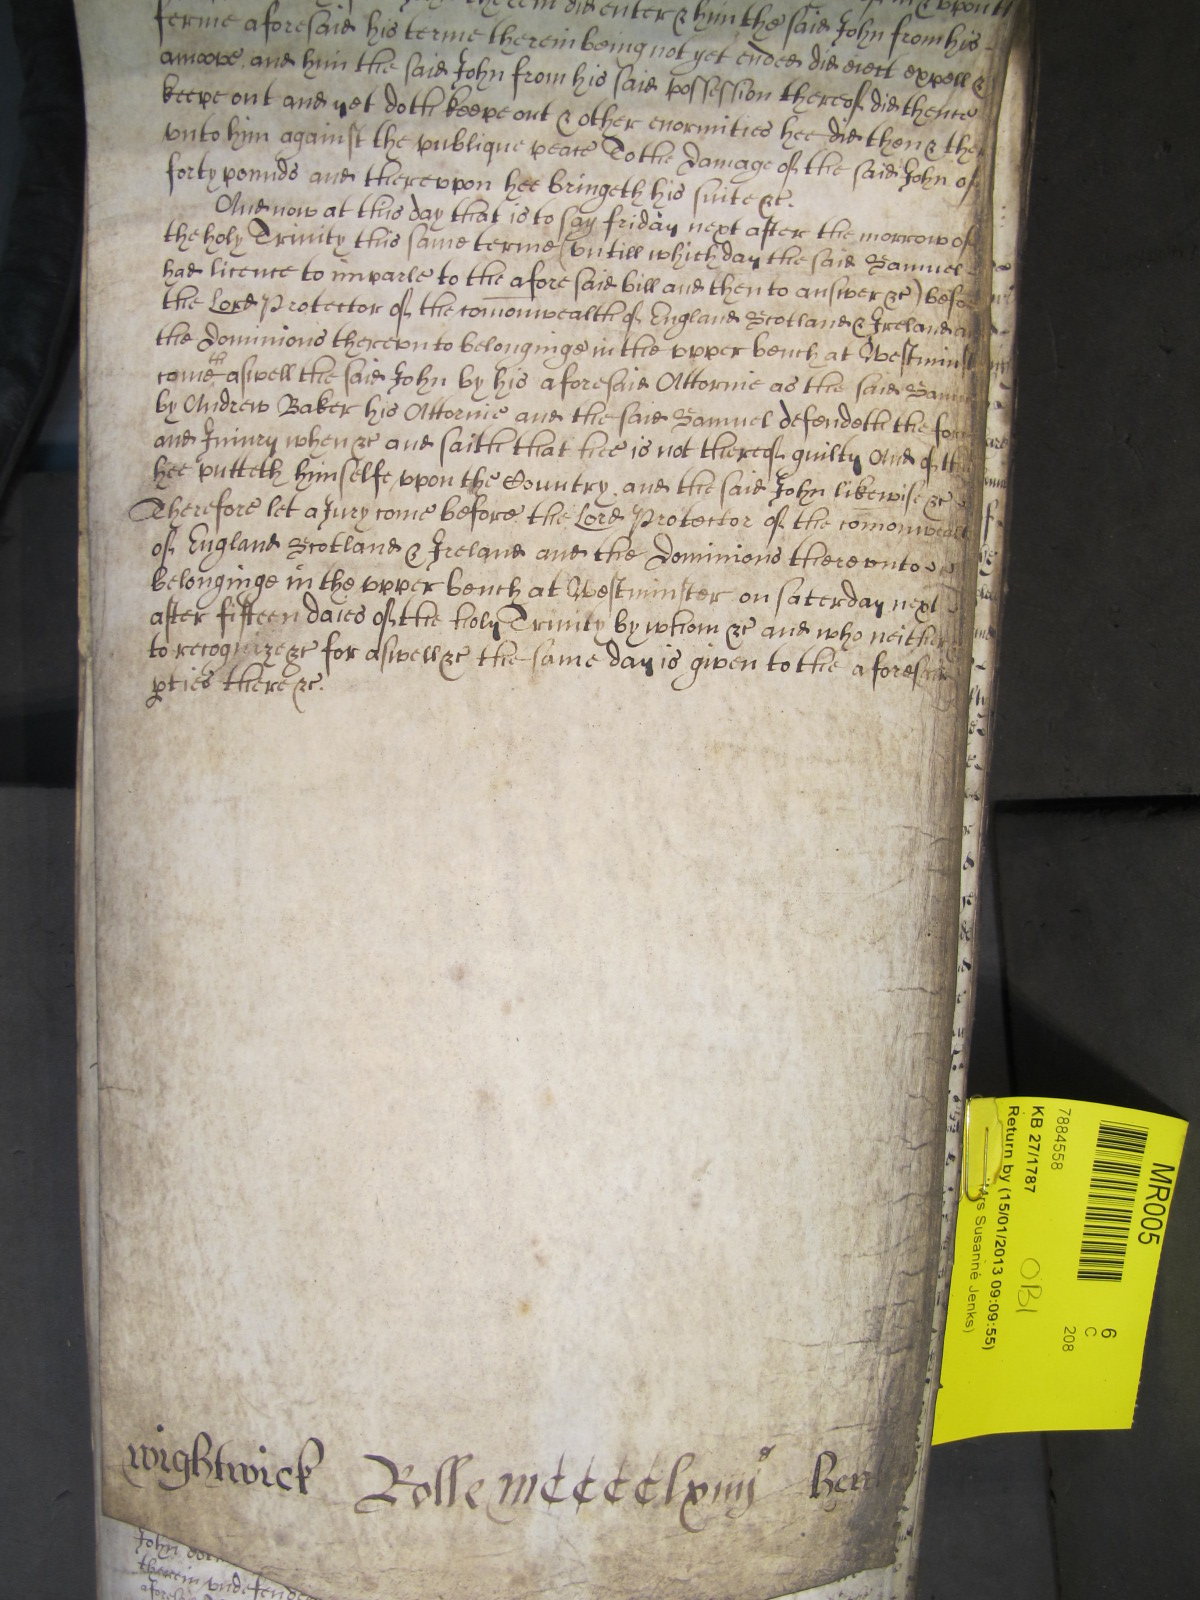 therein did enter & him the said John from his
ferme aforesaid his terme therein being not yet ended did eiect expell &
amoove. and him the said John from his said possession thereof did thence
keepe out and yet doth keepe out & other enormities hee did then & the
vnto him against the publique peace To the damage of the said John of
forty pounds and therevpon hee bringeth his suite &c.
And now at this day that is to say friday next after the morrow of
the holy Trinity this same terme (vntill which day the said Samuel
had licence to imparle to the afore said bill and then to answer &c) befo
the Lord Protector of the comonwealth of England Scotland & Ireland a
the Dominions therevnto belonginge in the vpper bench at Westminst
cometh aswell the said John by his aforesaid Attornie as the said Sam
by Andrew Baker his Attornie and the said Samuel defendeth the forc
and Iniury when &c and saith that hee is not thereof guilty And of th
hee putteth himselfe vpon the Country. and the said John likewise &c
Therefore let a Jury come before the Lord Protector of the comonwealt
of England Scotland & Ireland and the Dominions therevnto
belonginge in the vpper bench at Westminster on saterday next
after fifteen daies of the holy Trinity by whom &c and who neither
to recognize &c for aswell &c the same day is given to the aforesaid
pties there &c.
wightwick Rolle mccccclxiiijd
John
therein vndefende
afores
MR005
6
C
208
7884558
KB 27/1787
OBI
Return by (15/01/2013 09:09:55)
Mrs Susanne Jenks)